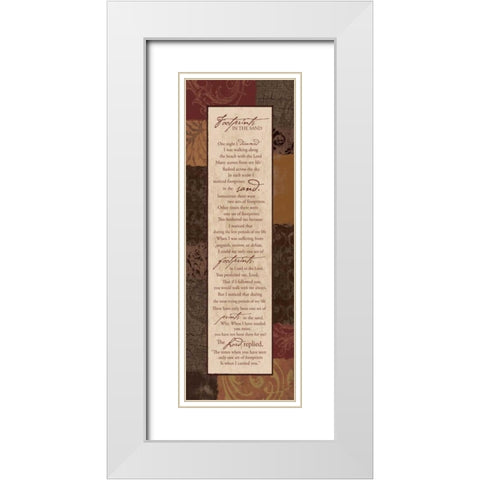 Footprints
IN THE SAND
One night I dreamed
I was walking along
the beach with the Lord
Many scenes from my life
flashed across the sky
In each scene I
noticed footprints
in the sand.
Sometimes there were
two sets of footprints
Other times there were
one set of footprints
This bothered me because
I noticed that
during the low periods of my life
When I was suffering from
anguish, sorrow, or defeat,
I could see only one set of
footprints,
so I said to the Lord,
You promised me, Lord,
That if I followed you,
you would walk with me always.
But I noticed that during
the most trying periods of my life
There have only been one set of
prints in the sand.
Why, When I have needed
you most,
you have not been there for me?
The Lord replied,
"The times when you have seen
only one set of footprints
Is when I carried you."